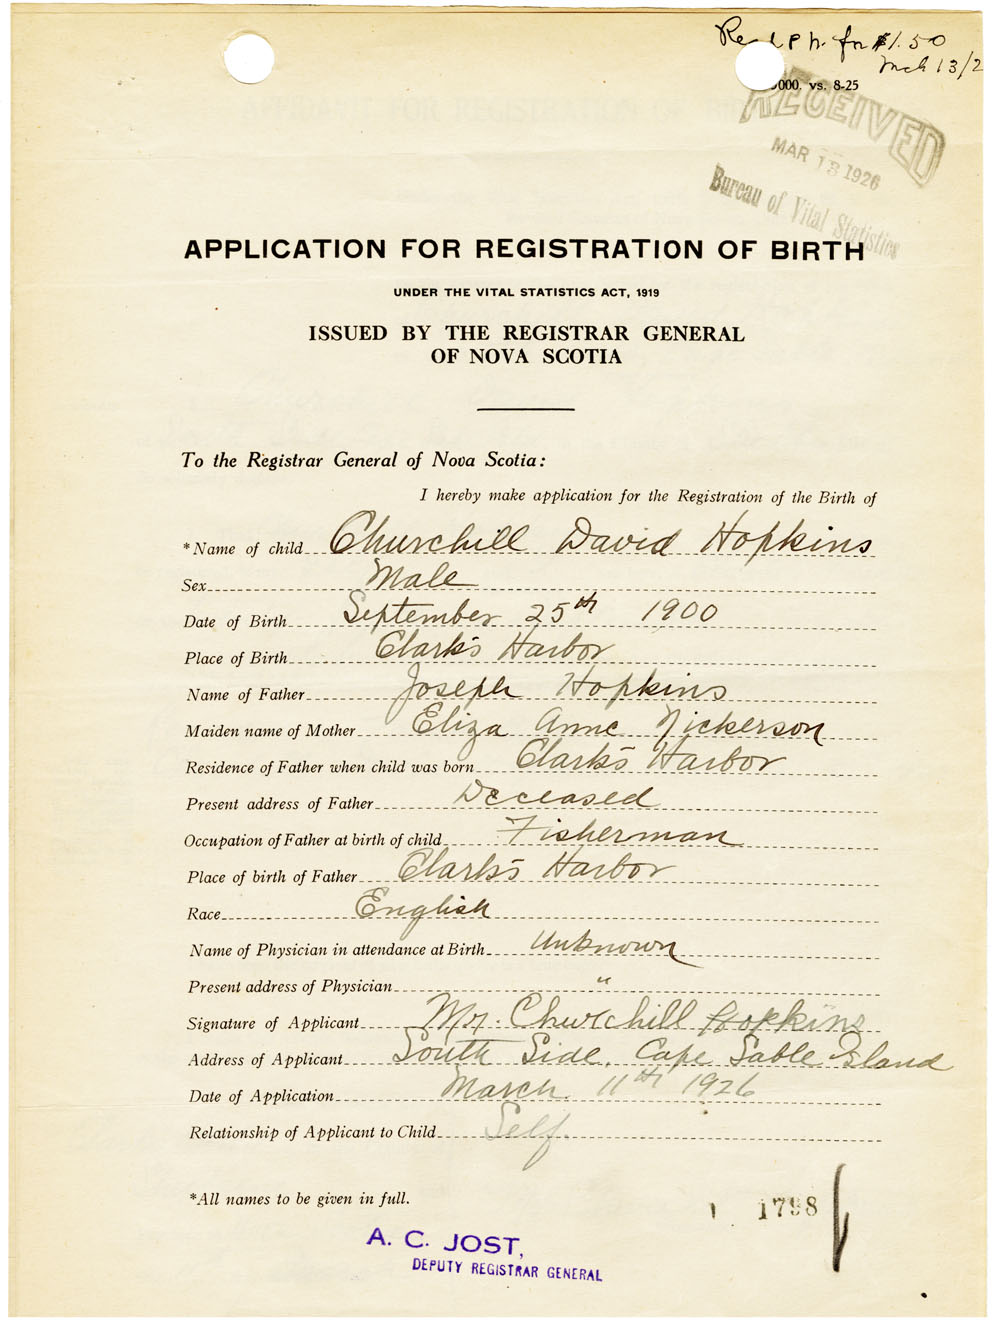 Recd P N. for $1.50
Mch 13/2
000. vs. 8-25
RECEIVED
MAR 13 1926
Bureau of Vital Statistics
APPLICATION FOR REGISTRATION OF BIRTH
UNDER THE VITAL STATISTICS ACT, 1919
ISSUED BY THE REGISTRAR GENERAL
OF NOVA SCOTIA
To the Registrar General of Nova Scotia:
I hereby make application for the Registration of the Birth of
*Name of child Churchill David Hopkins
Sex Male
Date of Birth September 25th 1900
Place of Birth Clark's Harbor
Name of Father Joseph Hopkins
Maiden name of Mother Eliza Anne Nickerson
Residence of Father when child was born Clark's Harbor
Present address of Father Deceased
Occupation of Father at birth of child Fisherman
Place of birth of Father Clark's Harbor
Race English
Name of Physician in attendance at Birth Unknown
Present address of Physician "
Signature of Applicant Mr. Churchill Hopkins
Address of Applicant South Side, Cape Sable Island
Date of Application March 11th 1926
Relationship of Applicant to Child Self.
*All names to be given in full.
1798
A. C. JOST,
DEPUTY REGISTRAR GENERAL